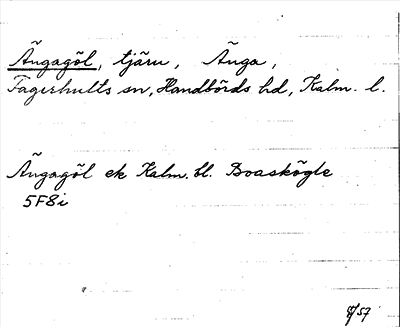 Ängagöl, tjärn, Änga,
Fagerhults sn, Handbörds hd, Kalm. l.
Ängagöl ek Kalm. bl. Boaskögle
5F8i
/57